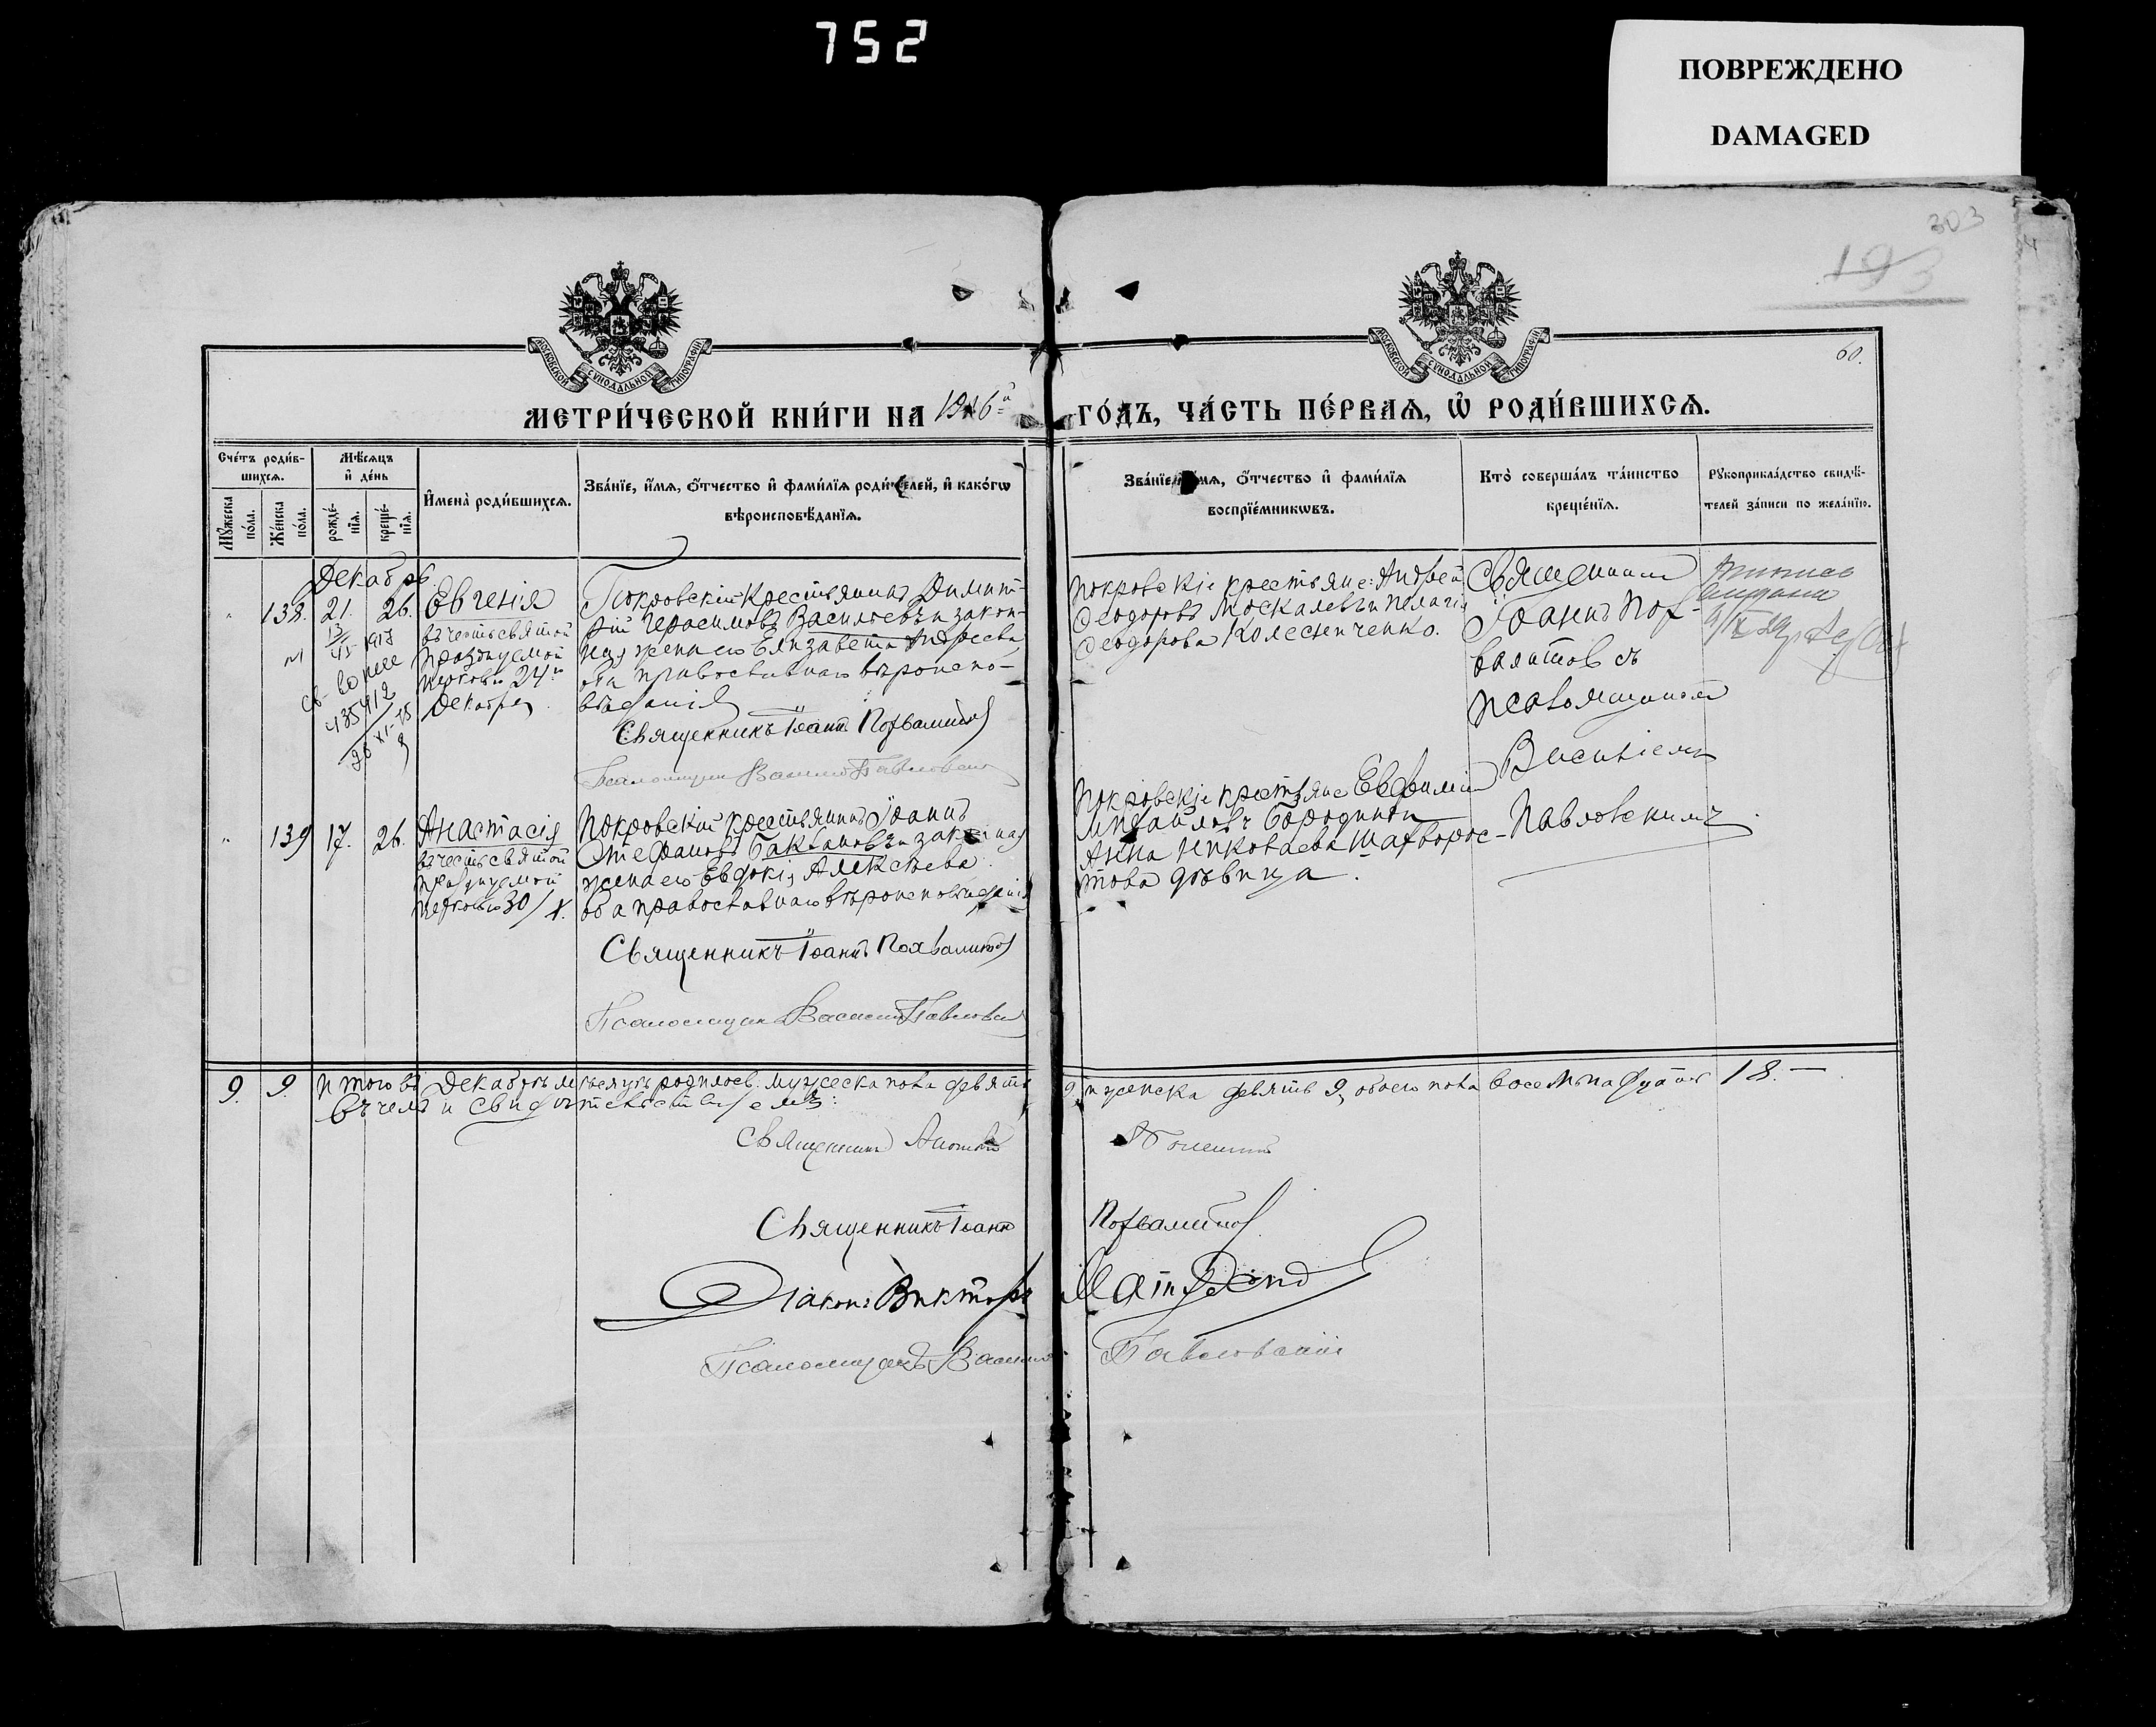 752
ПОВРЕЖДЕНО
DAMAGED
303
193
60.
МОСКОВСКОЙ СѴНОДАЛЬНОЙ ТИПОГРАФІИ
МОСКОВСКОЙ СѴНОДАЛЬНОЙ ТИПОГРАФІИ
МЕТРИ́ЧЕСКОЙ КНИ́ГИ НА 1916й ГО́ДЪ, ЧА́СТЬ ПЕ́РВАѦ, Ѡ҆ РОДИ́ВШИХСѦ.
Сче́тъ роди́в-
шихсѧ.
Мꙋ́жеска
по́ла.
Же́нска
по́ла.
Мѣ́сѧцъ
и҆ де́нь
рожде́-
нїѧ.
креще́-
нїѧ.
И҆мена̀ роди́вшихсѧ.
Зва́нїе, и҆́мѧ, ѻ҆́тчество и҆ фами́лїѧ роди́телей, и҆ како́гѡ
вѣроисповѣ́данїѧ.
Зва́нїе, и҆́мѧ, ѻ҆́тчество и҆ фами́лїѧ
воспрїе́мникѡвъ.
Кто̀ соверша́лъ та́инство
креще́нїѧ.
Рꙋкоприкла́дство свидѣ́-
телей за́писи по жела́нїю.
Декабрь.
138. 21. 26.
Евгенія
въ честь святой
празднуемой
церковью 24го
Декабря
435912
26 XI-45
Покровскій крестьянинъ Димит-
рій Герасимовъ Васильевъ и закон-
ная жена его Елизавета Андреева
оба православнаго вѣроиспо-
вѣданія
Священникъ Іоаннъ Похвалитовъ
Псаломщикъ Василій Павловскій
Покровскіе крестьяне: Андрей
Ѳеодоровъ Москалевъ и Пелагія
Ѳеодорова Колесниченко.
Священникъ
Іоаннъ Пох-
валитовъ съ
псаломщикомъ
Василіемъ
Павловскимъ
139 17. 26.
Анастасія
въ честь святой
празднуемой
церковью 30/X.
Покровскій крестьянинъ Іоаннъ
Стефановъ Баклановъ и законная
жена его Евдокія Алексѣева
оба православнаго вѣроисповѣданія
Священникъ Іоаннъ Похвалитовъ
Псаломщикъ Василій Павловскій
Покровскіе крестьяне Евфимій
Михайловъ Бородинъ и
Анна Николаева Шахворос-
това дѣвица.
9. 9. Итого въ Декабрѣ мѣсяцѣ родилось: мужеска пола девять 9, и женска девять 9, обоего пола восемьнадцать 18.—
въ чемъ и свидѣтельствуемъ:
Священникъ
Священникъ Іоаннъ Похвалитовъ
Діаконъ Викторъ
Псаломщикъ Василій Павловскій